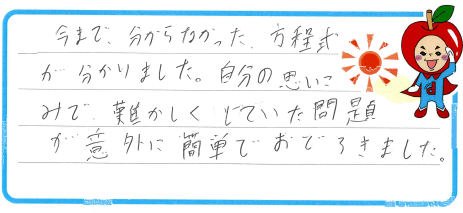 今まで、分からなかった、方程式
が分かりました。自分の思いこ
みで、難かしくしていた問題
が意外に簡単でおどろきました。